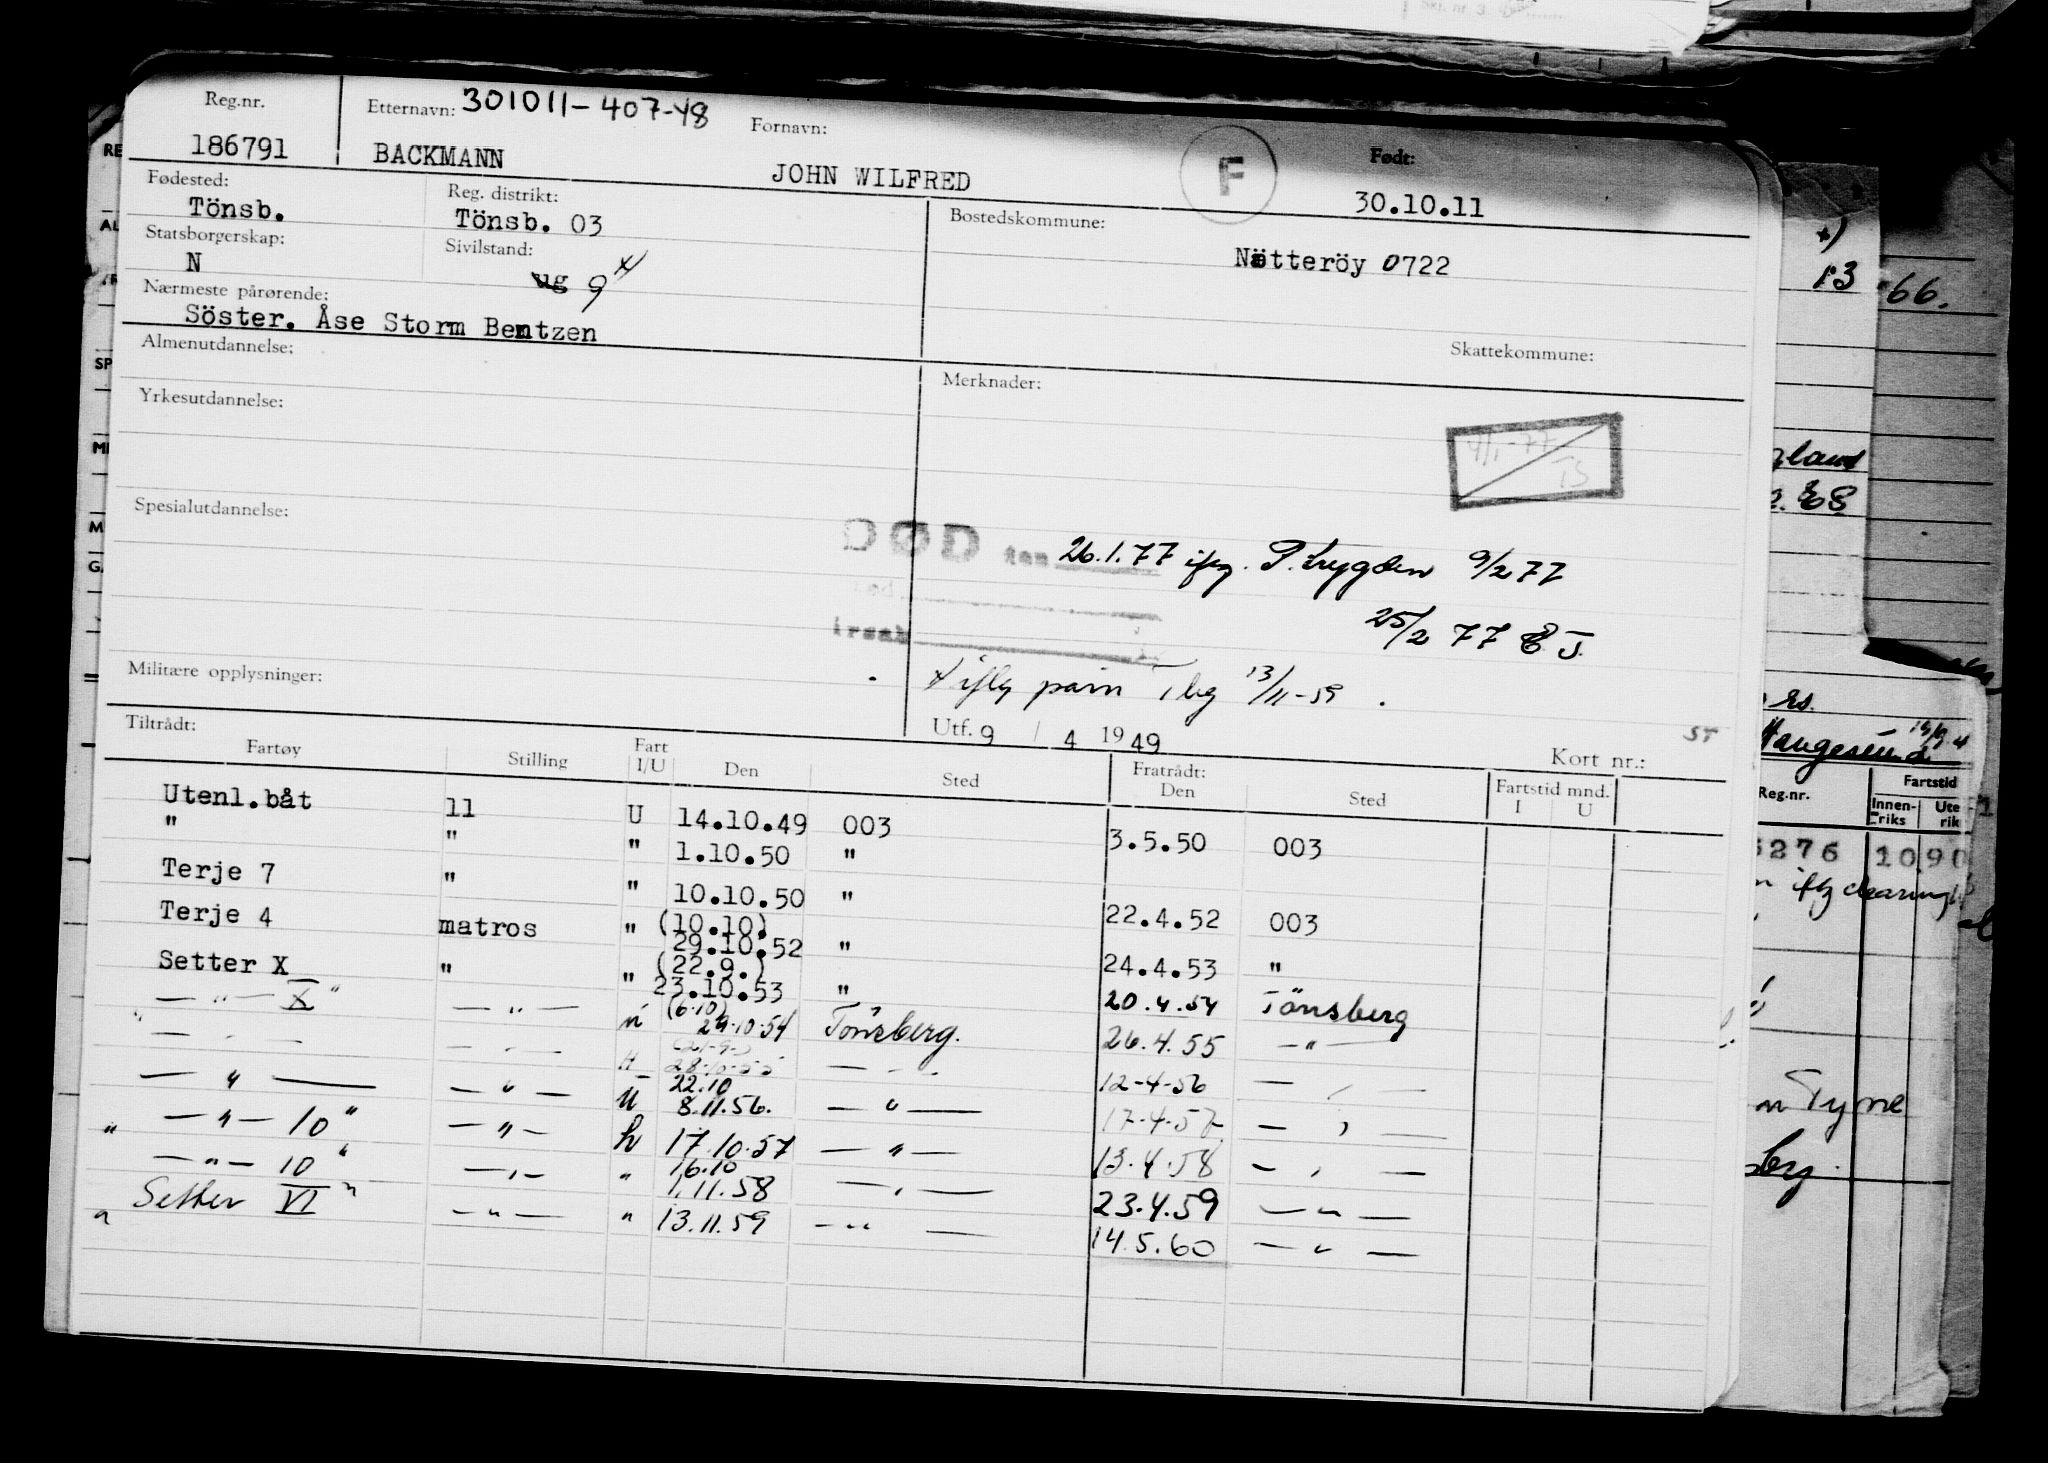 Reg.nr. Etternavn: 301011-407-48 Fornavn: Født:
186791 BACKMANN JOHN WILFRED F 30.10.11
Fødested: Reg. distrikt: Bostedskommune:
Tönsb. Tönsb. 03
Statsborgerskap: Sivilstand: Nøtteröy 0722
N ug g x)
Nærmeste pårørende:
Söster. Åse Storm Bentzen
Almenutdannelse: Skattekommune:
Merknader:
Yrkesutdannelse:
4/1-77 TS
Spesialutdannelse:
DØD den 26.1.77 iflg. P.trygden 9/2 77
25/2 77 E.J.
Militære opplysninger: x iflg Tbg 13/11-59.
Utf. 9 / 4 1949 ST
Tiltrådt: Kort nr.:
Fartøy Stilling Fart I/U Den Sted Fratrådt: Den Sted Fartstid mnd. I U
Utenl.båt ll U 14.10.49 003 3.5.50 003
" " " 1.10.50 "
Terje 7 " " 10.10.50 " 22.4.52 003
Terje 4 matros " (10.10) 29.10.52 " 24.4.53 "
Setter X " " (22.9.) 23.10.53 " 20.4.54 Tönsberg
— " — X " — " — (6.10) 29.10.54 Tönsberg. 26.4.55 — " —
28.10.55 12-4-56
— " — — " — U 22.10 8.11.56. — " — 17-4-57
" — " — 10 " — " — 17.10.57 — " — 13.4.58
— " — 10 " " 16.10 1.11.58 23.4.59 — " —
" Setter VI " — " — " 13.11.59 — " — 14.5.60 — " —
x)
13 66.
E.S.
Haugesund
Reg.nr. Fartstid
Innenriks Ute rik
5276 10 90
iflg clearing
Tyrne
berg.